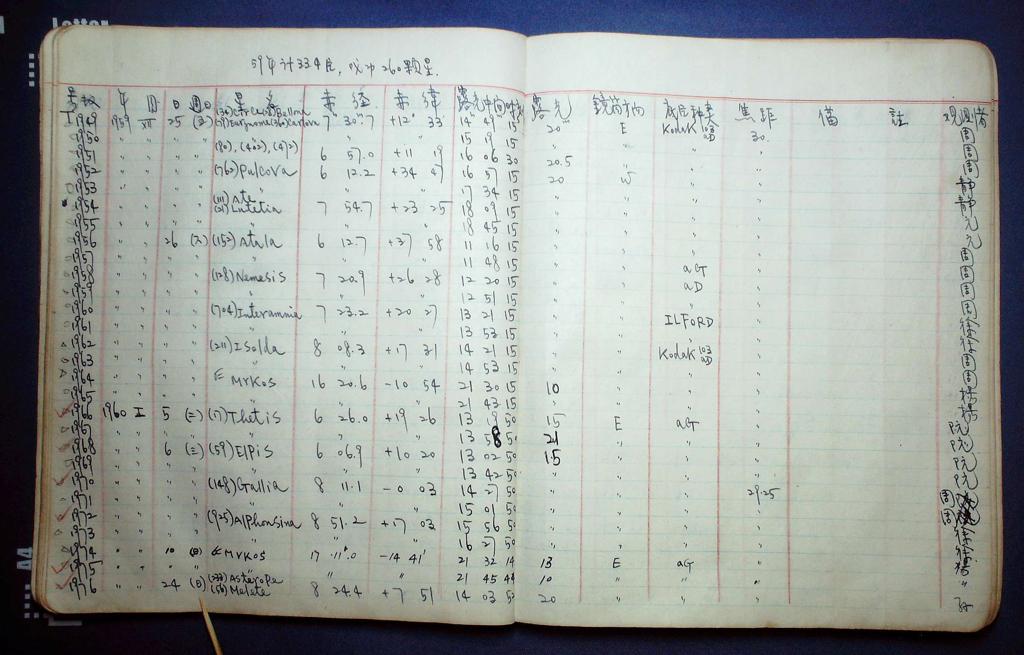 Letter
59年计334底, 成功260颗星.
号数 年 月 日 週日 星名 赤经 赤纬 露光中间时刻 露光 镜筒方向 底片种类 焦距 备 註 观测者
(34) Circe (28) Bellona
I 1949 1959 XII 25 (39) Carlova 7 30.7 +12 33 14 49 15 20 E Kodak 103aD 30.
1950 " " " 15 19 15 " " " "
1951 " " " (80), (402), (472) 6 57.0 +11 19 16 06 30 20.5 " " "
1952 " " " (762) Pulcova 6 12.2 +34 47 16 57 15 20 W " "
1953 " " " " 17 34 15 " " " "
1954 " " " (111) Ate (21) Lutetia 7 54.7 +23 25 18 09 15 " " " "
1955 " " " " 18 45 15 " " " "
1956 " " 26 (六) (152) Atala 6 12.7 +37 58 11 16 15 " " " "
1957 " " " " 11 48 15 " " " "
1958 " " " (128) Nemesis 7 20.9 +26 28 12 20 15 " " aG "
1959 " " " " 12 51 15 " " aD "
1960 " " " (704) Interamnia 7 23.2 +20 27 13 21 15 " " " "
1961 " " " " 13 53 15 " " ILFORD "
1962 " " " (211) Isolda 8 08.3 +17 31 14 21 15 " " " "
1963 " " " " 14 53 15 " " Kodak 103aD "
1964 " " " Mrkos 16 20.6 -10 54 21 30 15 10 " " "
1965 " " " " 21 43 15 " " " "
1966 1960 I 5 (二) (17) Thetis 6 26.0 +19 26 13 19 50 15 E aG "
1967 " " " " 13 58 50 21 " " "
1968 " " 6 (三) (59) Elpis 6 06.9 +10 20 13 02 50 15 " " "
1969 " " " " 13 42 50 " " " "
1970 " " " (148) Gallia 8 11.1 -0 03 14 27 50 " " " 29.25
1971 " " " " 15 01 50 " " " "
1972 " " " (925) Alphonsina 8 51.2 +17 03 15 56 50 " " " "
1973 " " " " 16 27 50 " " " "
1974 " " 10 (日) Mrkos 17 11.0 -14 41 21 32 14 13 E aG "
1975 " " " " 21 45 44 10 " " "
1976 " " 24 (日) (233) Asterope (56) Melete 8 24.4 +7 51 14 03 50 20 " " "
A4